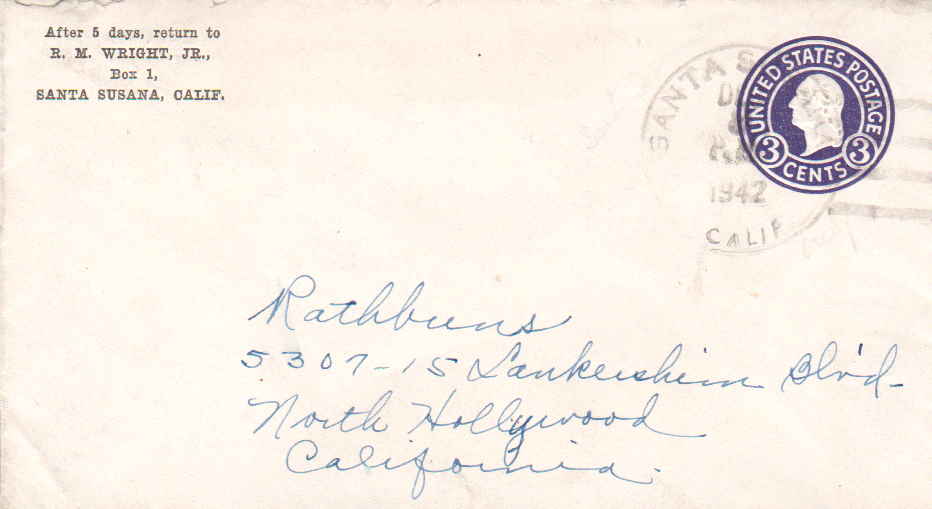 After 5 days, return to
R. M. WRIGHT, JR.,
Box 1,
SANTA SUSANA, CALIF.
SANTA S
1942
CALIF
UNITED STATES POSTAGE
3 CENTS 3
Rathbuns
5307-15 Lankershim Blvd-
North Hollywood
California.